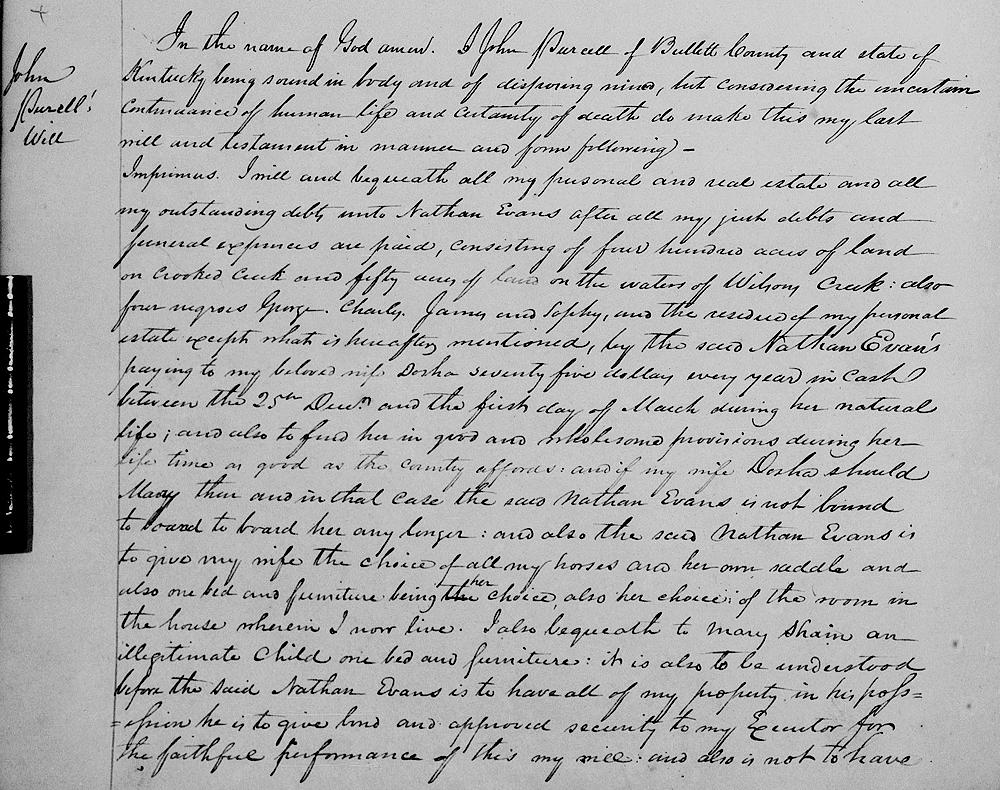 John
Purcell's
Will
In the name of God amen. I John Purcell of Bullitt County and state of
Kentucky being sound in body and of disposing mind, but considering the uncertain
continuance of human life and certainty of death do make this my last
will and testament in manner and form following) -
Imprimus. I will and bequeath all my personal and real estate and all
my outstanding debts unto Nathan Evans after all my just debts and
funeral expences are paid, consisting of four hundred acres of land
on Crooked Creek and fifty acres of land on the waters of Wilsons Creek: also
four negroes George. Charles, James and Sophy, and the residue of my personal
estate except what is hereafter mentioned, by the said Nathan Evan's
paying to my beloved wife Dosha seventy five dollars every year in Cash
between the 25th Decr and the first day of March during her natural
life; and also to find her in good and wholesome provisions during her
life time as good as the country affords: and if my wife Dosha should
Marry then and in that case the said Nathan Evans is not bound
to board to board her any longer: and also the said Nathan Evans is
to give my wife the choice of all my horses and her own saddle and
also one bed and furniture being the her choice, also her choice of the room in
the house wherein I now live. I also bequeath to Mary Shain an
illegitimate Child one bed and furniture: it is also to be understood
before the said Nathan Evans is to have all of my property in his poss=
=ession he is to give bond and approved security to my Executor for
the faithful performance of this my will: and also is not to have